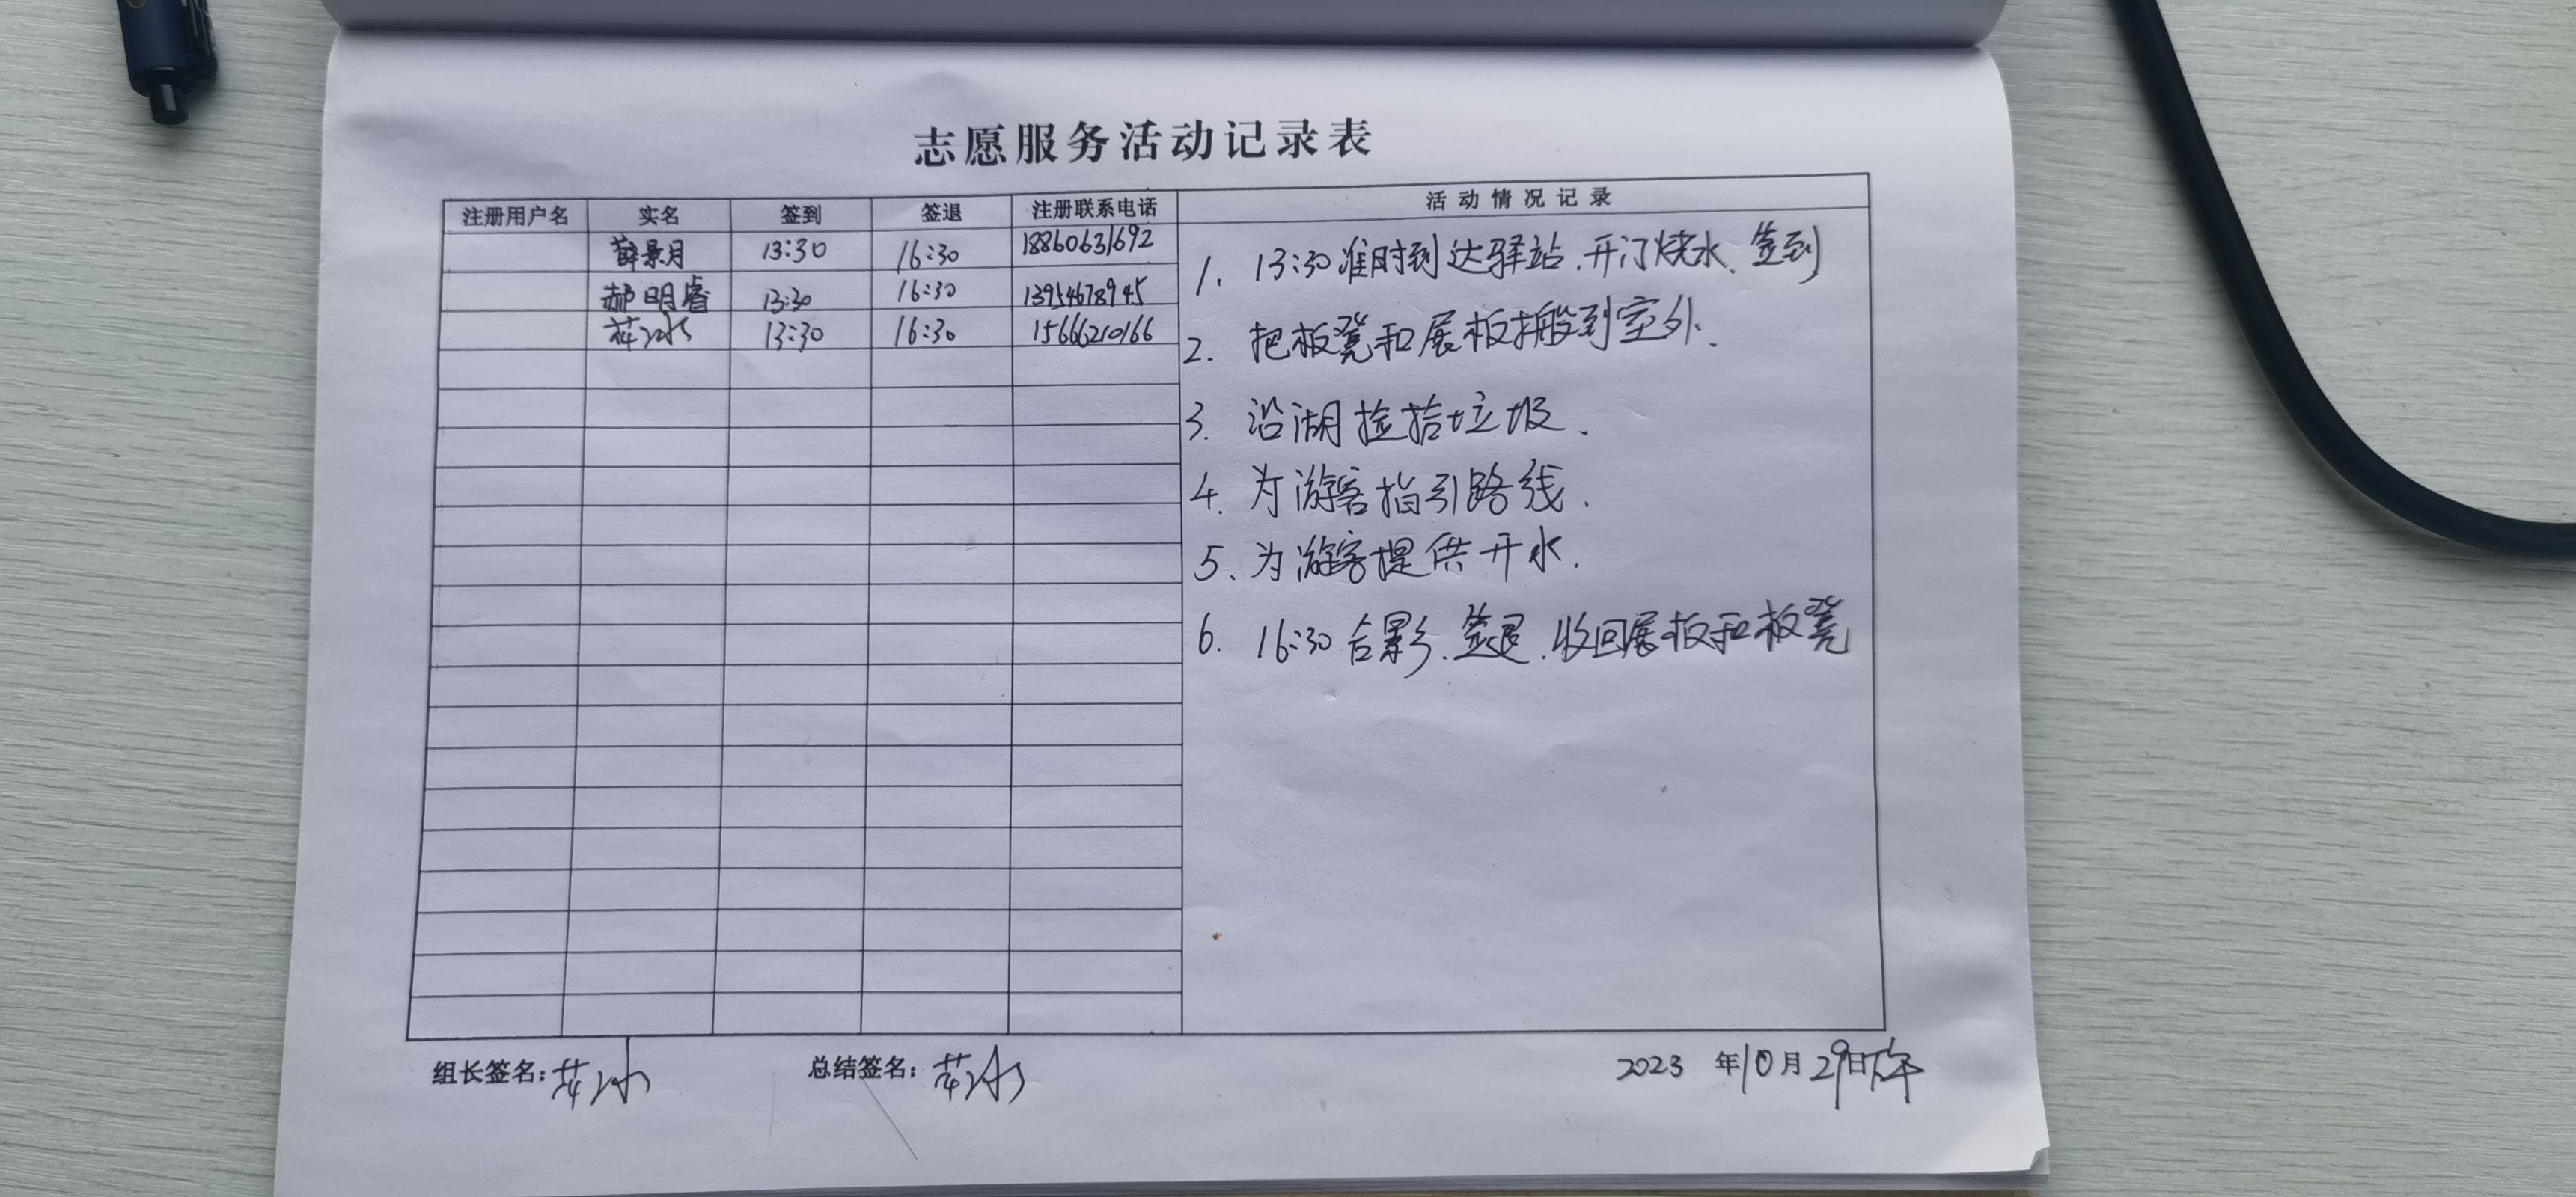 志愿服务活动记录表
注册用户名 实名 签到 签退 注册联系电话 活动情况记录
薛景月 13:30 16:30 18860631692
郝明睿 13:30 16:30 13954678945
13:30 16:30 15666210166
1. 13:30准时到达驿站、开门烧水、签到
2. 把板凳和展板搬到室外.
3. 沿湖捡拾垃圾.
4. 为游客指引路线.
5. 为游客提供开水.
6. 16:30合影、签退、收回展板和板凳
组长签名: 总结签名: 2023 年10月29日下午